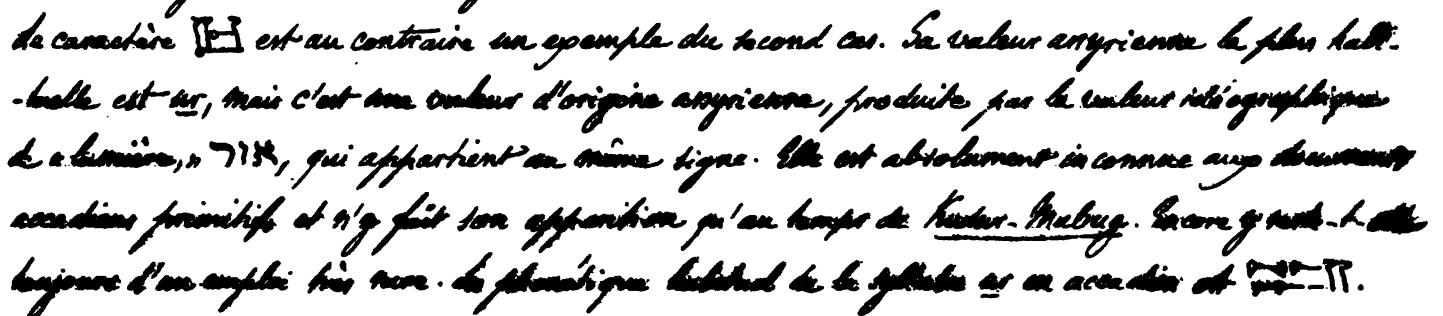 Le caractère est au contraire un exemple du second cas. Sa valeur assyrienne la plus habi-
-tuelle est ur, mais c'est une valeur d'origine assyrienne, produite par la valeur idéographique
de « lumière, » אור, qui appartient au même signe. Elle est absolument inconnue aux documents
accadiens primitifs et n'y fait son apparition qu'au temps de Kudur-Mabug. Encore y reste-t-elle
toujours d'un emploi très rare. Le phonétique habituel de la syllabe ur en accadien est